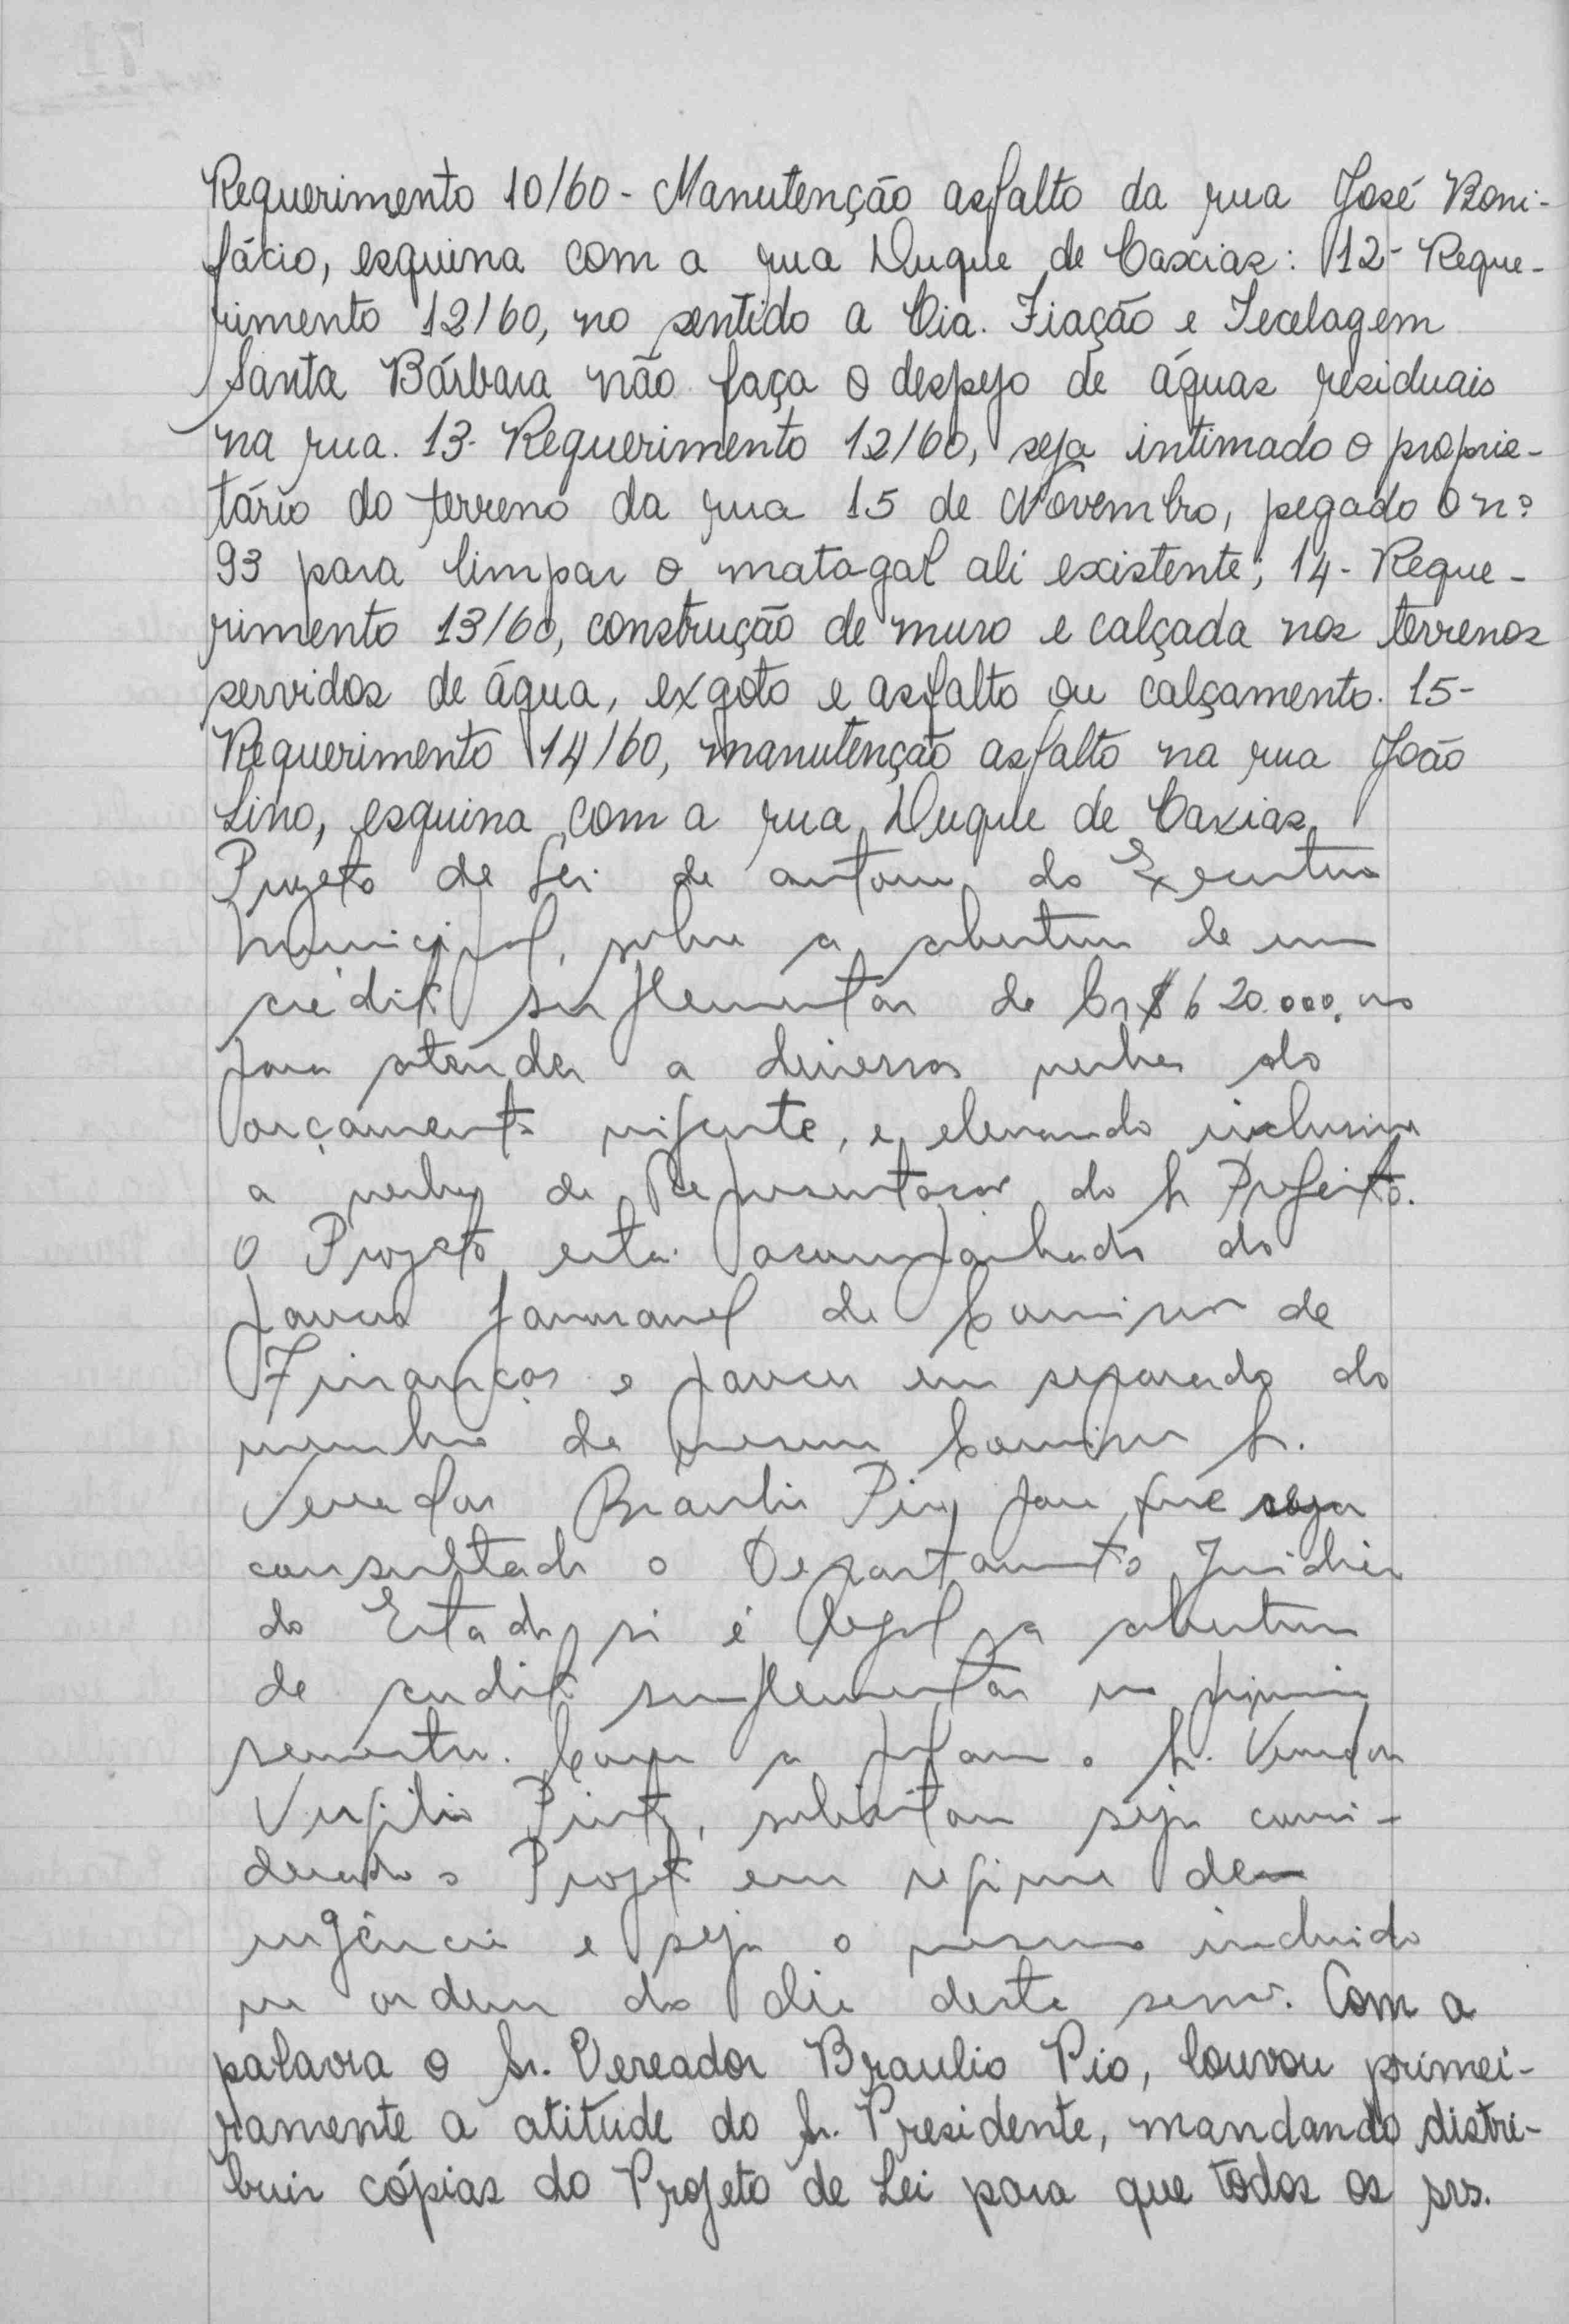 Requerimento 10/60 - Manutenção asfalto da rua José Boni-
fácio, esquina com a rua Duque de Caxias: 12 - Reque-
rimento 12/60, no sentido a Cia. Fiação e Tecelagem
Santa Bárbara não faça o despejo de águas residuais
na rua. 13- Requerimento 12/60, seja intimado o proprie-
tário do terreno da rua 15 de Novembro, pegado o nº
93 para limpar o matagal ali existente; 14- Reque-
rimento 13/60, construção de muro e calçada nos terrenos
servidos de água, exgoto e asfalto ou calçamento. 15-
Requerimento 14/60, manutenção asfalto na rua João
Lino, esquina com a rua Duque de Caxias.
Projeto de Lei de autoria do Executivo
Municipal, sobre a abertura de um
crédito suplementar de Cr$ 620.000,00
para atender a diversas verbas do
orçamento vigente, e elevando inclusive
a verba de Representação do Sr Prefeito.
O Projeto está acompanhado do
parecer favoravel da Comissão de
Finanças e parecer em separado do
membro da mesma Comissão Sr.
Vereador Braulio Pio, para que seja
consultado o Departamento Juridico
do Estado si é legal a abertura
de credito suplementar no primeiro
semestre. Com a palavra o Sr. Vereador
Virgilio Pinto, solicitou seja consi-
derado o Projeto em regime de
urgência e seja o mesmo incluido
na ordem do dia desta sessão. Com a
palavra o Sr. Vereador Braulio Pio, louvou primei-
ramente a atitude do Sr. Presidente, mandando distri-
buir cópias do Projeto de Lei para que todos os srs.